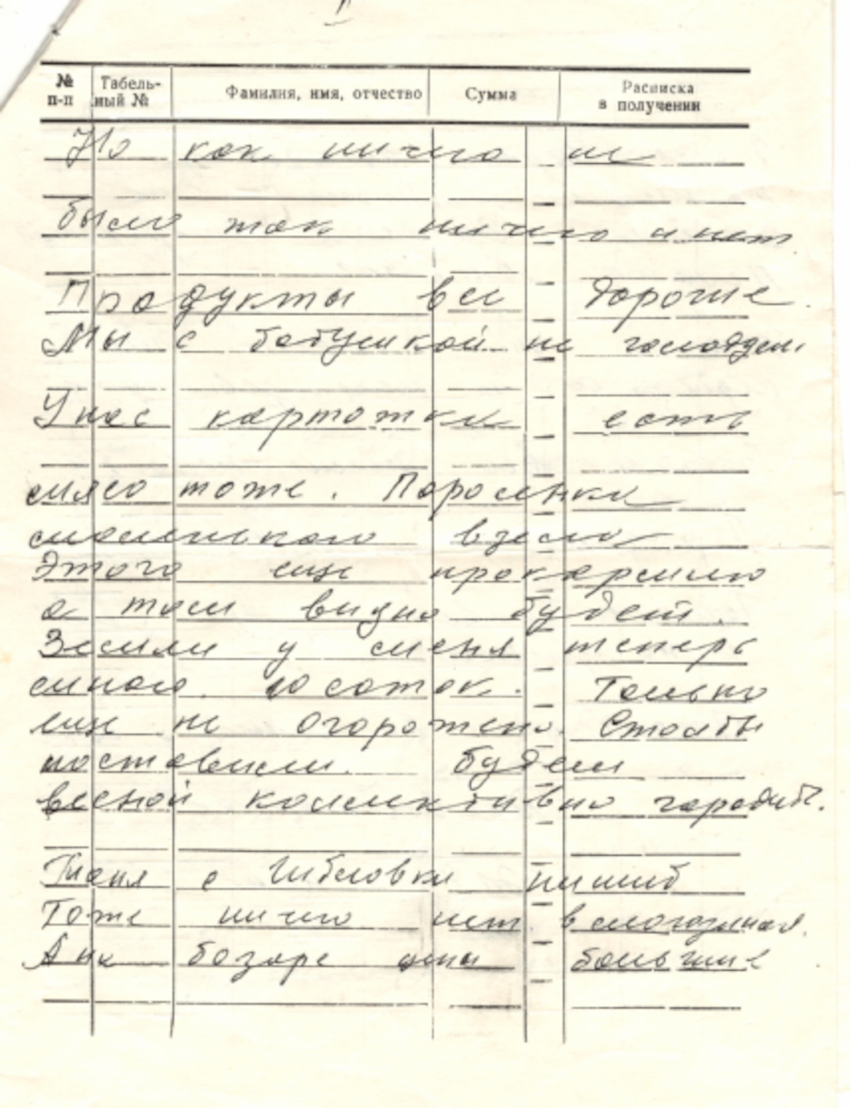 № п-п Табель-ный № Фамилия, имя, отчество Сумма Расписка в получении
Но как ничего не
было так ничего и нет
Продукты все дорогие.
Мы с бабушкой не голодуем
У нас картошка есть
мясо тоже. Поросенка
маленького взяла
Этого еще прокормлю
а там видно будет.
Земли у меня теперь
много. 10 соток. Только
еще не огорожено. Столбы
поставили. будем
весной коллективно городить.
Таня с Шиловки пишет
Тоже ничего нет в магазинах.
А на базаре цены большие